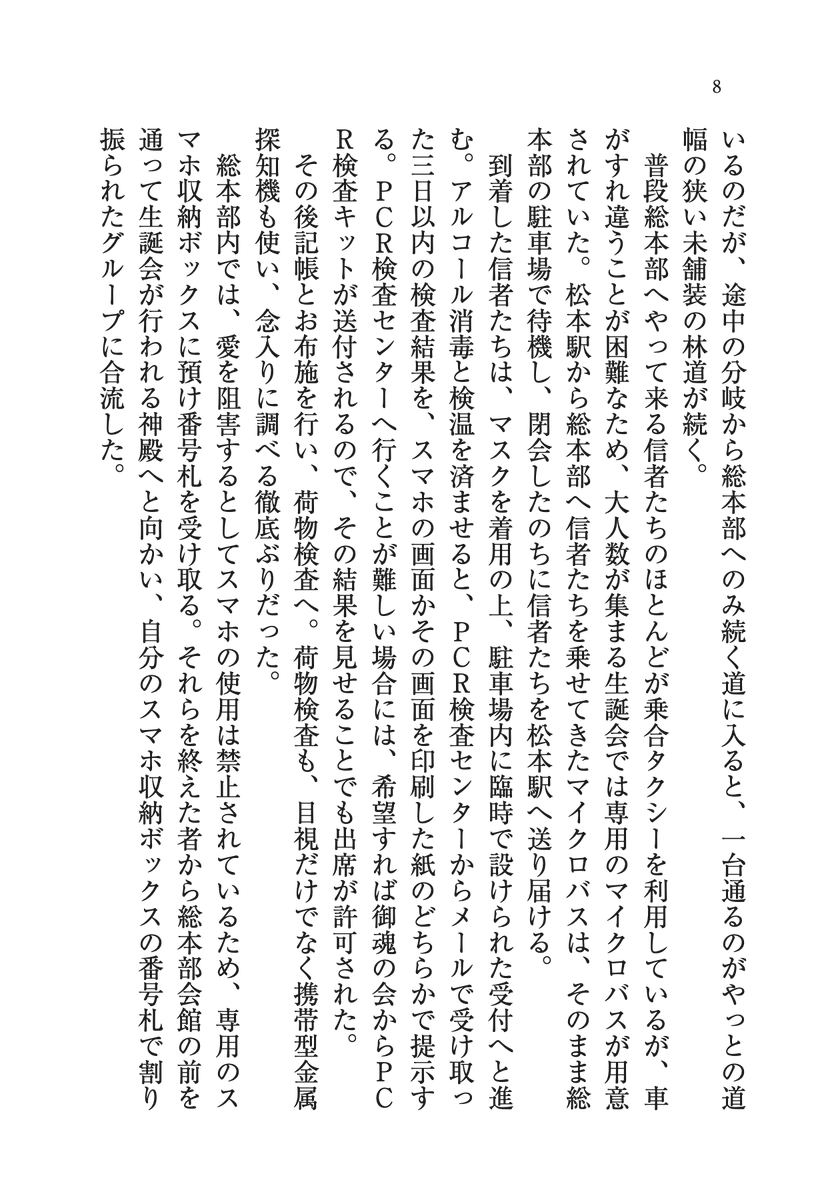 8
いるのだが、途中の分岐から総本部へのみ続く道に入ると、一台通るのがやっとの道
幅の狭い未舗装の林道が続く。
普段総本部へやって来る信者たちのほとんどが乗合タクシーを利用しているが、車
がすれ違うことが困難なため、大人数が集まる生誕会では専用のマイクロバスが用意
されていた。松本駅から総本部へ信者たちを乗せてきたマイクロバスは、そのまま総
本部の駐車場で待機し、閉会したのちに信者たちを松本駅へ送り届ける。
到着した信者たちは、マスクを着用の上、駐車場内に臨時で設けられた受付へと進
む。アルコール消毒と検温を済ませると、PCR検査センターからメールで受け取っ
た三日以内の検査結果を、スマホの画面かその画面を印刷した紙のどちらかで提示す
る。PCR検査センターへ行くことが難しい場合には、希望すれば御魂の会からPC
R検査キットが送付されるので、その結果を見せることでも出席が許可された。
その後記帳とお布施を行い、荷物検査へ。荷物検査も、目視だけでなく携帯型金属
探知機も使い、念入りに調べる徹底ぶりだった。
総本部内では、愛を阻害するとしてスマホの使用は禁止されているため、専用のス
マホ収納ボックスに預け番号札を受け取る。それらを終えた者から総本部会館の前を
通って生誕会が行われる神殿へと向かい、自分のスマホ収納ボックスの番号札で割り
振られたグループに合流した。